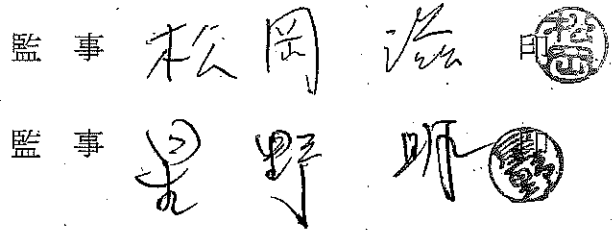 監事 松岡滋 印
監事 星野明 印